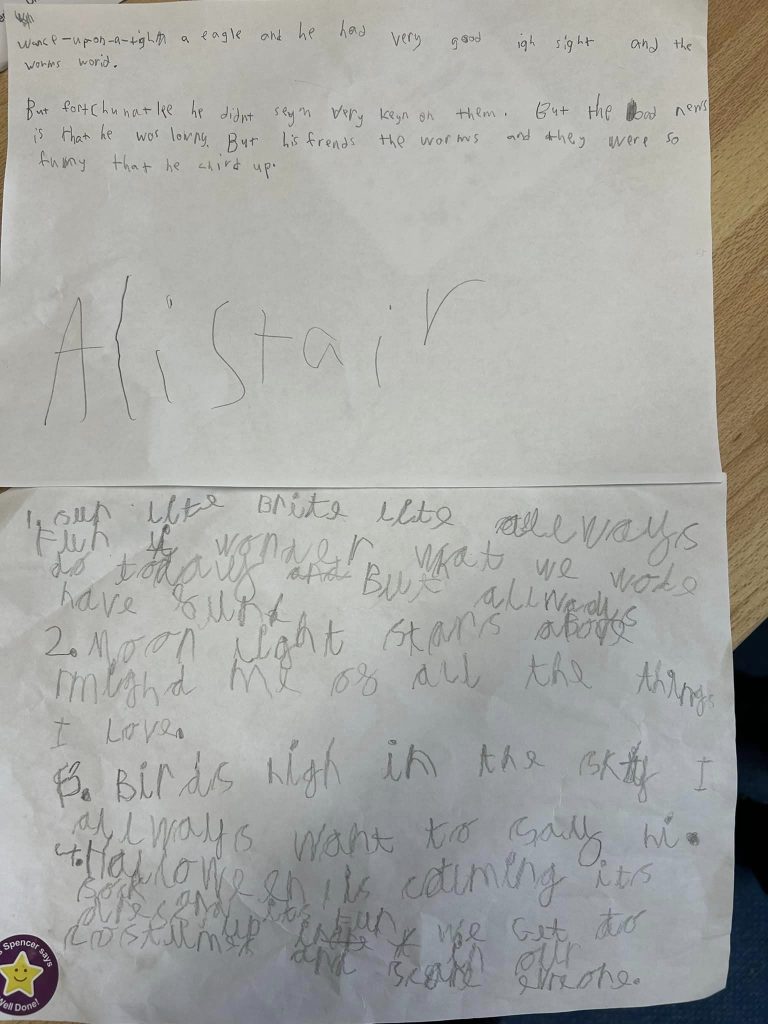 wance-upon-a-tighm a eagle and he had very good igh sight and the
worms world.
But fortchunatlee he didnt seym very keyn on them. But the bad news
is that he wos lowny. But his frends the worms and they were so
funny that he chird up.
Alistair
1. sun lite Brite lite allways
Fun I wonder what we wode
do today and But allways
have
2. Moon light stars above
mighd me of all the things
I Love.
3. Birds high in the sky I
allways want to say hi.
4. Halloween is cauming its
and its Fun we get to
up in our
costumes and scare evreone.
Spencer says
Well Done!